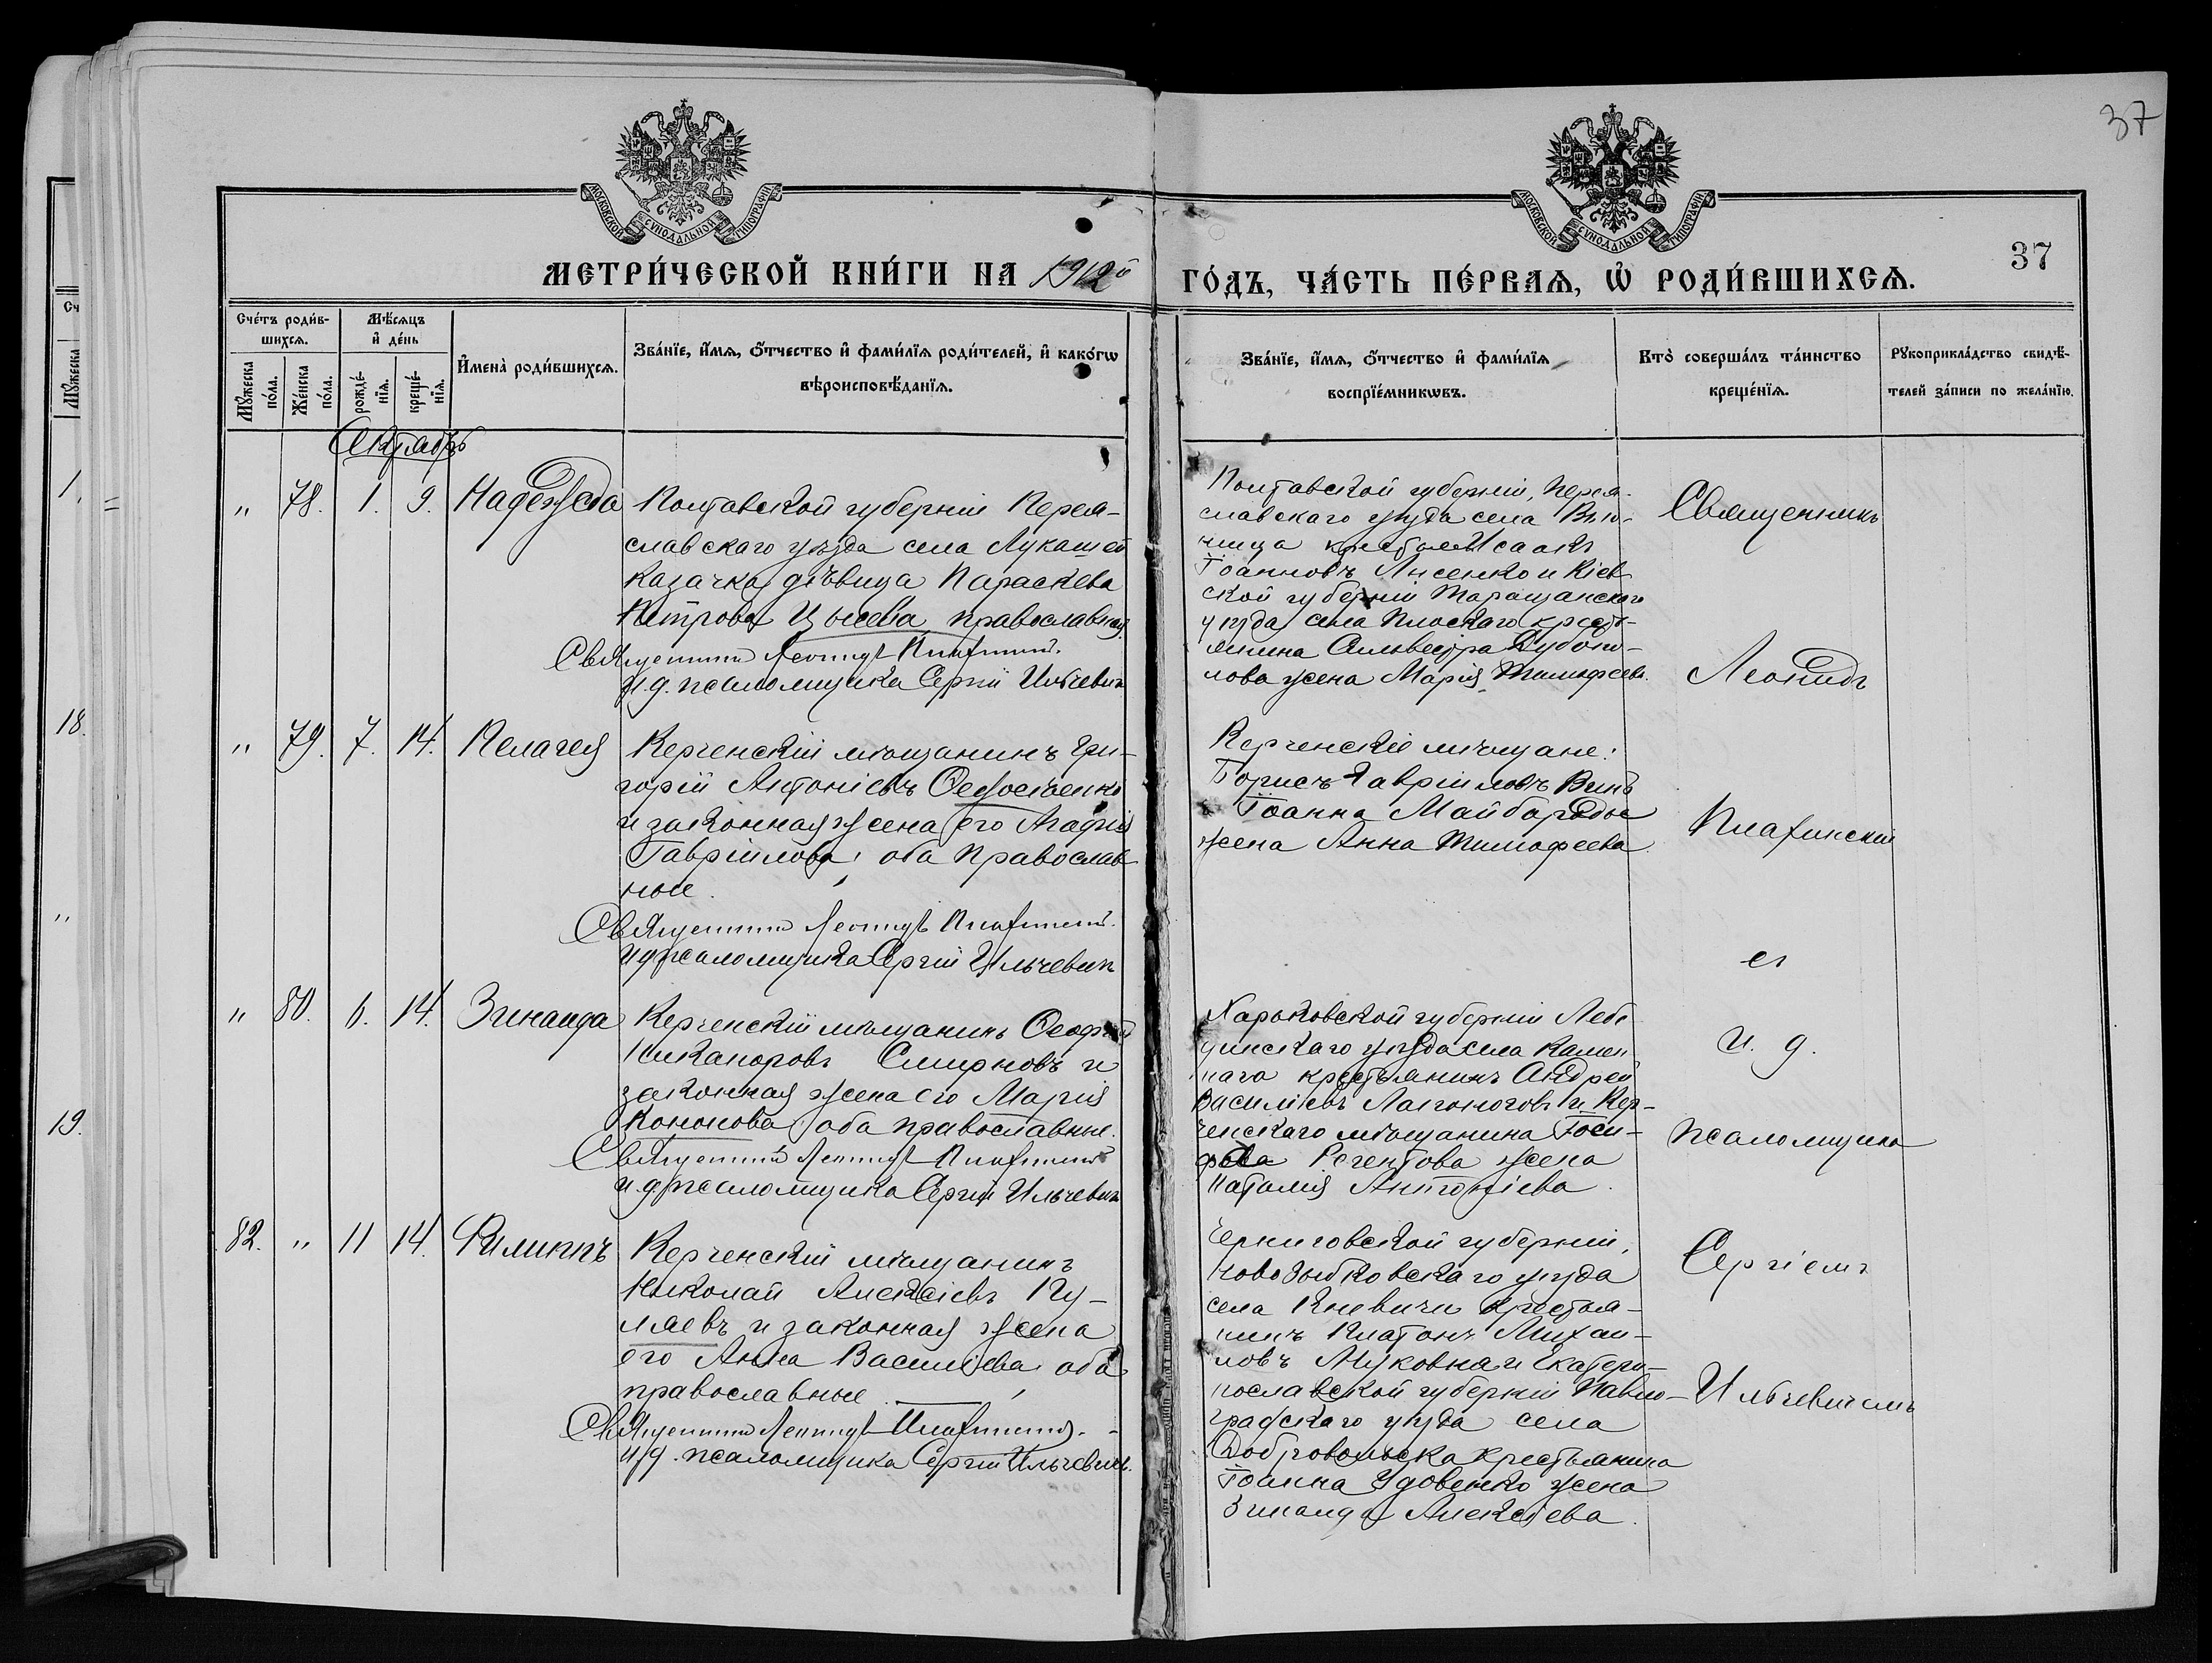 37
МОСКОВСКОЙ СѴНОДАЛЬНОЙ ТИПОГРАФІИ
МОСКОВСКОЙ СѴНОДАЛЬНОЙ ТИПОГРАФІИ
МЕТРИ́ЧЕСКОЙ КНИ́ГИ НА 1912й ГО́ДЪ, ЧА́СТЬ ПЕ́РВАѦ, Ѡ҆ РОДИ́ВШИХСѦ.
37
Сче́тъ роди́в-
шихсѧ.
Мꙋ́жеска по́ла.
Же́нска по́ла.
Мѣ́сѧцъ
и҆ де́нь
рожде́-
нїѧ.
креще́-
нїѧ.
И҆мена̀ роди́вшихсѧ.
Зва́нїе, и҆́мѧ, ѻ҆́тчество и҆ фами́лїѧ роди́телей, и҆ како́гѡ
вѣроисповѣ́данїѧ.
Зва́нїе, и҆́мѧ, ѻ҆́тчество и҆ фами́лїѧ
воспрїе́мникѡвъ.
Кто̀ соверша́лъ та́инство
креще́нїѧ.
Рꙋкоприкла́дство свидѣ́-
телей за́писи по жела́нїю.
Октябрь
" 78. 1. 9. Надежда
Полтавской губерніи Перея-
славскаго уѣзда села Лукашей
казачка дѣвица Параскева
Петрова Цысева православная.
Священникъ Леонидъ
И.д. псаломщика Сергій Ильчевичъ
Полтавской губерніи, Перея-
славскаго уѣзда села
Исаакъ
Іоанновъ Лисенко и Кіев-
ской губерніи Таращанскаго
уѣзда села Плоскаго кресть-
янина Сильвестра
жена Марія Тимофеева.
" 79. 7. 14. Пелагея
Керченскій мѣщанинъ Гри-
горій Антоніевъ
и законная жена его Агафія
Гавріилова, оба православ-
ные.
Священникъ Леонидъ
И.д. псаломщика Сергій Ильчевичъ
Керченскіе мѣщане:
Борисъ Гавріиловъ
Іоанна Майбороды
жена Анна Тимофеева.
" 80. 6. 14. Зинаида
Керченскій мѣщанинъ
Никаноровъ Смирновъ и
законная жена его Марія
Кононова оба православные.
Священникъ Леонидъ
И.д. псаломщика Сергій Ильчевичъ
Харьковской губерніи Лебе-
динскаго уѣзда села Камен-
наго крестьянинъ Андрей
Василіевъ и Кер-
ченскаго мѣщанина Іоси-
фа Регентова жена
Наталія Антоніева.
82. " 11 14. Филиппъ
Керченскій мѣщанинъ
Николай Алексіевъ Ку-
ляевъ и законная жена
его Анна Василіева оба
православные.
Священникъ Леонидъ
И.д. псаломщика Сергій Ильчевичъ.
Черниговской губерніи,
Новозыбковскаго уѣзда
села крестья-
нинъ Платонъ Михаи-
ловъ и Екатери-
нославской губерніи Павло-
градскаго уѣзда села
Добровольска крестьянина
Іоанна Удовенко жена
Зинаида Алексіева.
Священникъ
Леонидъ
съ
и. д.
псаломщика
Сергіемъ
Ильчевичемъ
1.
18.
"
19.